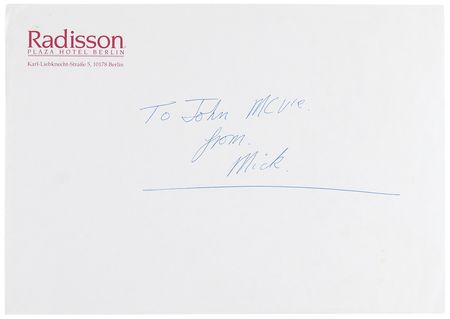 Radisson
PLAZA HOTEL BERLIN
Karl-Liebknecht-Straße 5, 10178 Berlin
To John McVie.
from.
Mick.